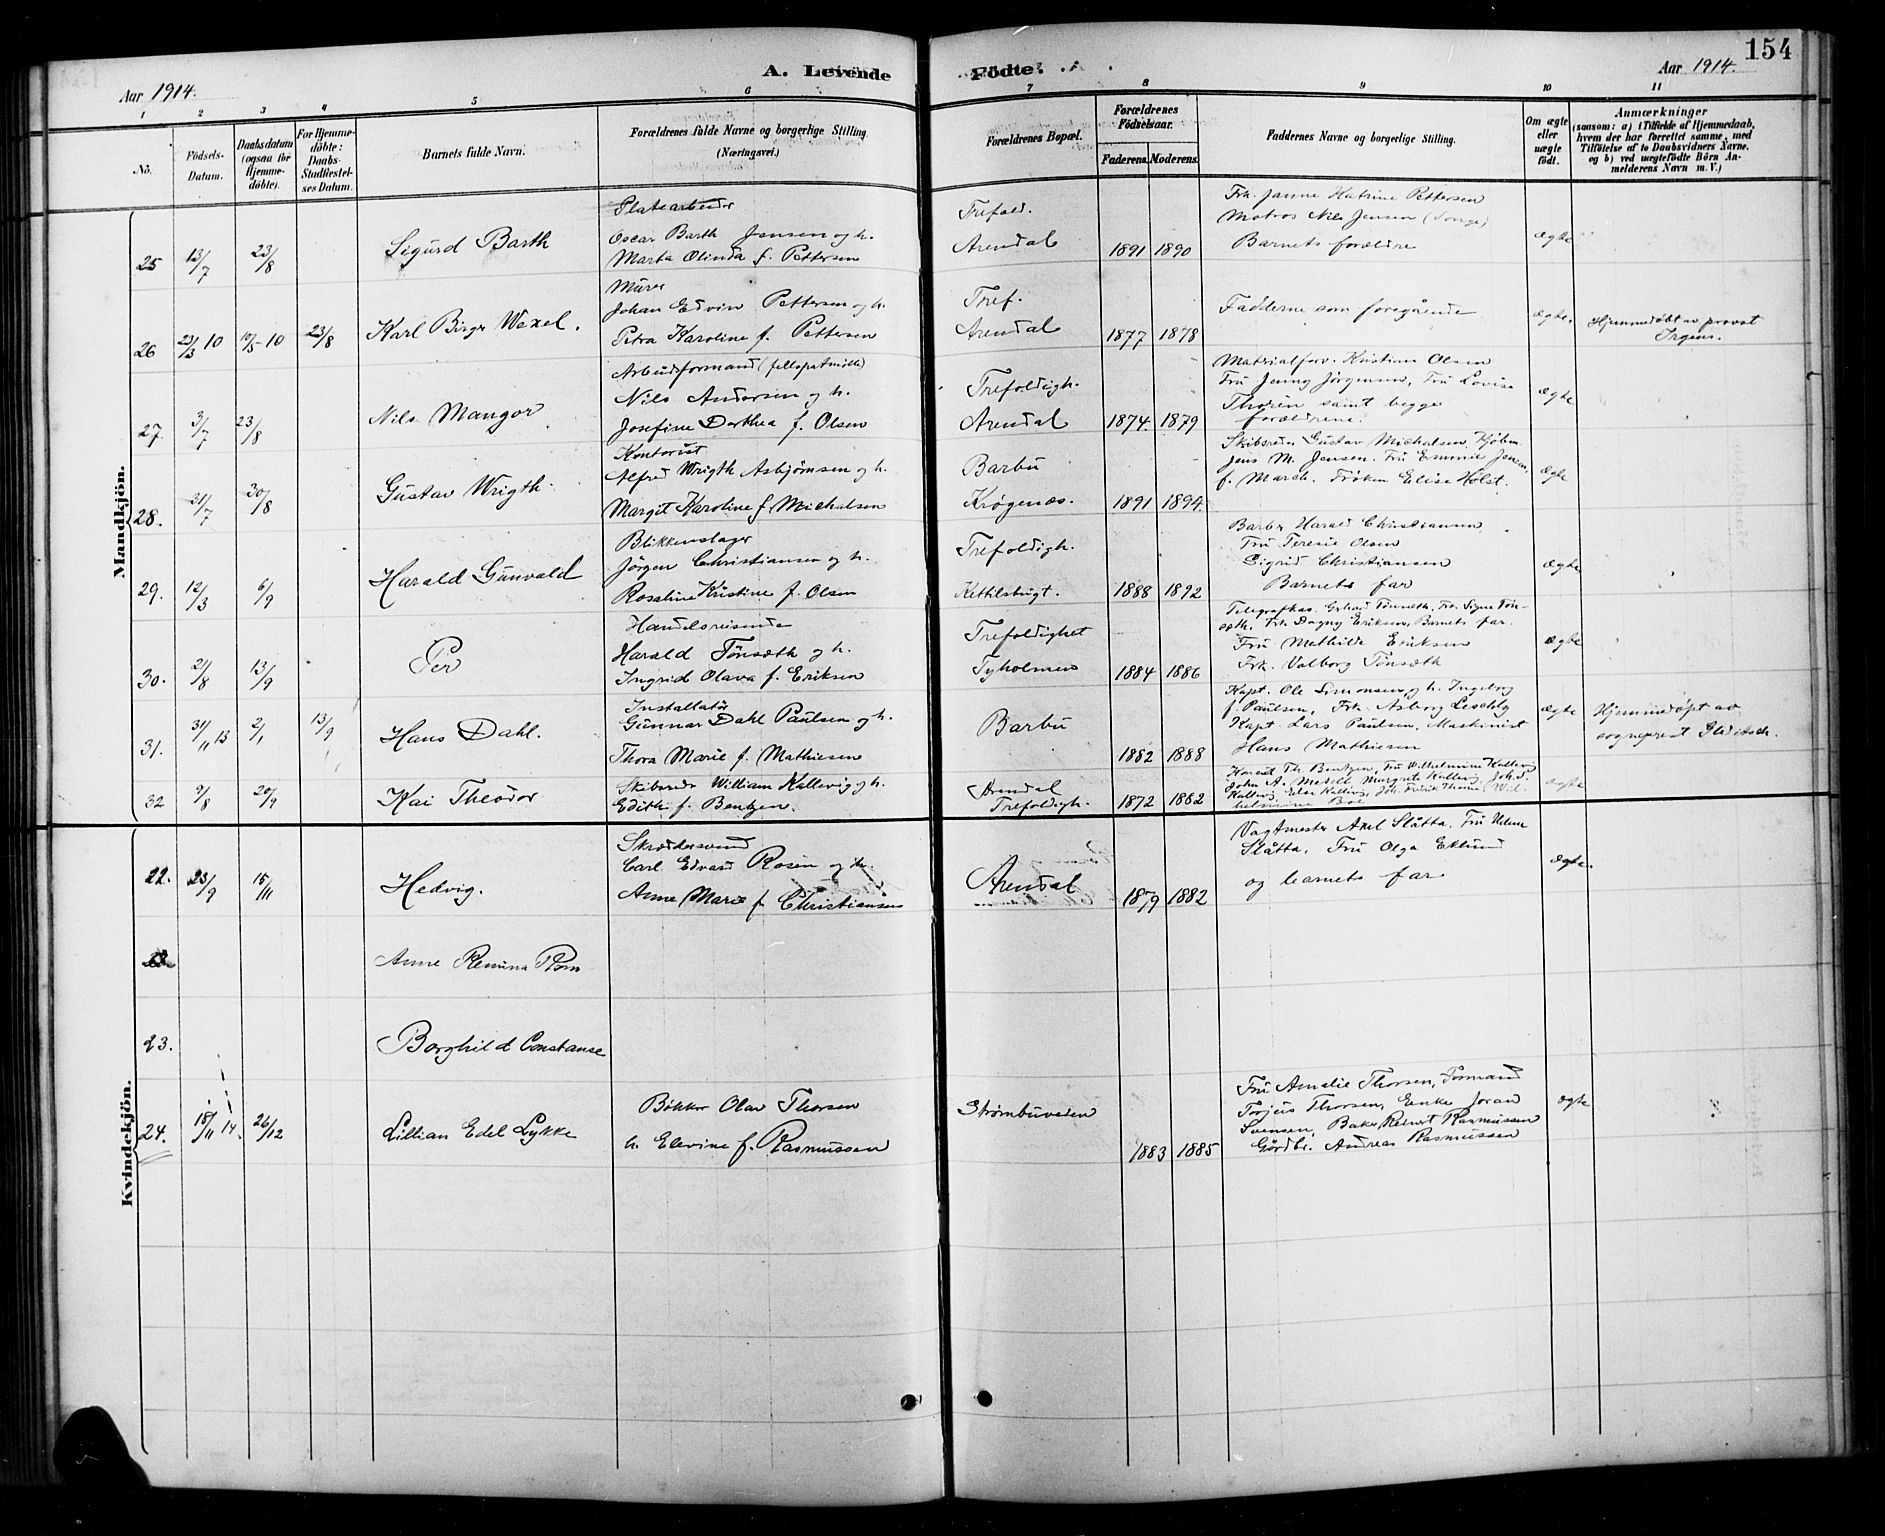 154
A. Levende Födte.
Aar 1914.
Aar 1914.
1 2 3 4 5 6 7 8 9 10 11
No.
Födsels-Datum.
Daabsdatum (ogsaa for Hjemme-døbte).
For Hjemme-døbte: Daabs-Stadfæstel-ses Datum.
Barnets fulde Navn.
Forældrenes fulde Navne og borgerlige Stilling. (Næringsvei.)
Forældrenes Bopæl.
Forældrenes Födselsaar.
Faderens. Moderens.
Faddernes Navne og borgerlige Stilling.
Om ægte eller uægte födt.
Anmærkninger
(saasom: a) i Tilfælde af Hjemmedaab,
hvem der har forrettet samme, med
Tilföielse af to Daabsvidners Navne.
og b) ved uægtefödte Börn An-
melderens Navn m. V.)
Mandkjön.
25 13/7 23/8 Sigurd Barth
Platearbeider
Oscar Barth Jensen og h.
Marta Olinda f. Pettersen
Trefold.
Arendal 1891 1890
Frk. Janne Katrine Pettersen
Matros Nils Jensen (Songe)
Barnets forældre
ægte
26 23/3 10 10/5-10 23/8 Karl Birger Wexel.
Murer
Johan Edvin Pettersen og h.
Petra Karoline f. Pettersen
Tref.
Arendal 1877 1878
Fadderne som foregående
ægte
Hjemmedøbt av provst
Irgens.
27. 3/7 23/8 Nils Mangor
Arbeidsformand
Nils Andersen og h.
Josefine Dorthea f. Olsen
Trefoldigh.
Arendal 1874. 1879
Matrialforv. Kristian Olsen
Fru Jenny Jörgensen, Fru Lovise
Thorén samt begge
forældrene.
ægte
28. 31/7 30/8 Gustav Wrigth
Kontorist
Alfred Wrigth Asbjørnsen og h.
Margit Karoline f. Michalsen
Barbu
Krøgenæs. 1891 1894.
Skibsreder Gustav Michalsen, Kjøbm.
Jens M. Jensen. Fru Emmie Jensen
f. March. Frøken Elise Holst.
ægte
29. 12/3 6/9 Harald Gunvald
Blikkenslager
Jörgen Christiansen og h.
Rosaline Kristine f. Olsen
Trefoldigh.
Kittilsbugt. 1888 1892
Barber Harald Christiansen
Fru Teresie Olsen
Sigrid Christiansen
Barnets far
ægte
30. 21/8 13/9 Per
Handelsreisende
Harald Tönsæth og h.
Ingrid Olava f. Eriksen
Trefoldighet
Tyholmen 1884 1886
Telegrafkas. Gerhard Tønsæth, Fru Signe Tön-
sæth. Frk. Dagny Eriksen, Barnets far.
Fru Mathilde Eriksen
Frk. Valborg Tönsæth
ægte
31. 31/11 13 2/1 13/9 Hans Dahl.
Installatör
Gunnar Dahl Paulsen og h.
Thora Marie f. Mathiesen
Barbu
1882 1888
Kapt. Ole Simonsen og h. Ingeborg
f. Paulsen, Frk. Asborg
Kapt. Lars Paulsen, Maskinist
Hans Mathiesen
ægte
Hjemmedøpt av
sogneprest Gleditsch.
32 9/8 20/9 Kai Theodor.
Skibsreder William Kallevig og h.
Edith f. Bentzen.
Arendal
Trefoldigh. 1872 1882
Konsul Th. Bentzen, Fru Wilhelmine Kallevig
John A. Margrete Kallevig, Joh. S.
Kallevig, Else Kallevig, Joh. Fredrik Thorne, Wil-
helmine Boe
ægte
Kvindekjön.
22. 23/9 15/11 Hedvig.
Skræddersvend
Carl Edvard Rosén og h.
Anne Marie f. Christiansen
Arendal 1879 1882
Vagtmester Axel Slåtta. Fru Helene
Slåtta. Fru Olga Eklund
og barnets far
ægte.
Anne Remina Thom
23. Borghild Constanse
24. 18/11 14. 26/12 Lillian Edel Lykke
Bökker Olav Thorsen
h. Elevine f. Rasmussen
Strømbuveien
1883 1885
Fru Amalie Thorsen, Formand
Torjus Thorsen, Enke Joran
Svensen, Baker Reinert Rasmussen
Gårdbr. Andreas Rasmussen
ægte